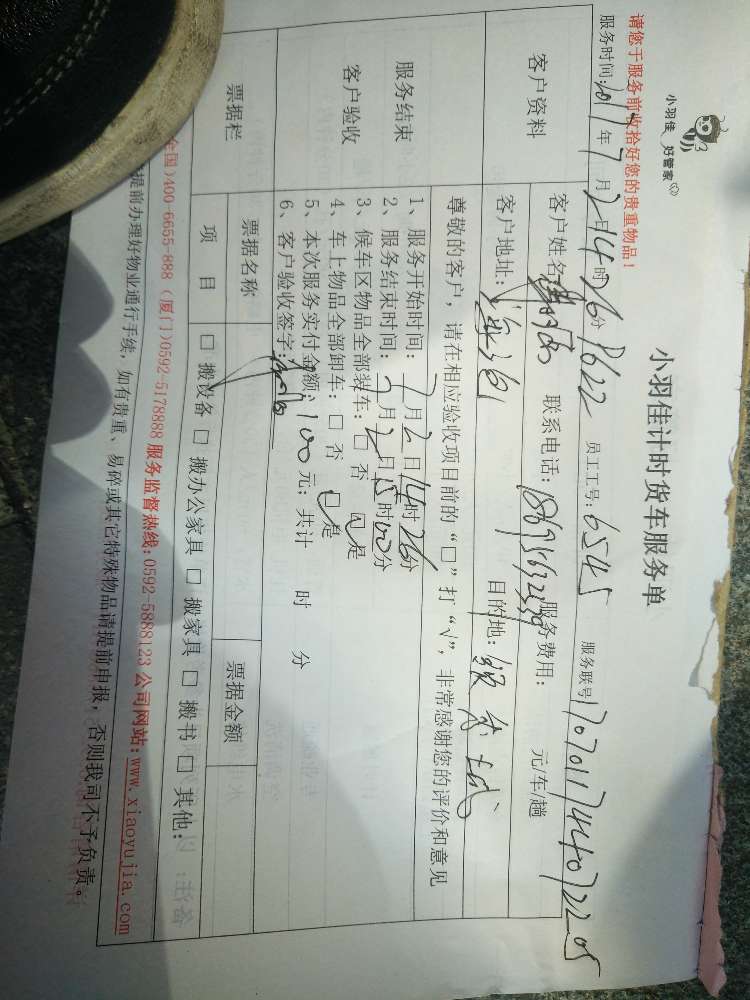 小羽佳 好管家
小羽佳计时货车服务单
请您于服务前收拾好您的贵重物品!
服务时间:2017年7月2日14时26分 P622 员工工号:6545 服务联号1707011744072205
客户资料
客户姓名 联系电话: 服务费用: 元车/趟
客户地址: 目的地:银泰城
尊敬的客户,请在相应验收项目前的“□”打“√”,非常感谢您的评价和意见
服务结束
客户验收
1、服务开始时间:7月2日14时26分
2、服务结束时间:7月2日15时00分
3、候车区物品全部装车:□ 否 □ 是
4、车上物品全部卸车:□ 否 □ 是
5、本次服务实付金额:100元;共计 时 分
6、客户验收签字:
票据栏 票据名称 票据金额
项 目 □ 搬设备 □ 搬办公家具 □ 搬家具 □ 搬书 □ 其他:
全国)400-6655-888 (厦门)0592-5178888 服务监督热线:0592-5888123 公司网站:www.xiaoyujia.com
提前办理好物业通行手续,如有贵重、易碎或其它特殊物品请提前申报,否则我司不予负责。